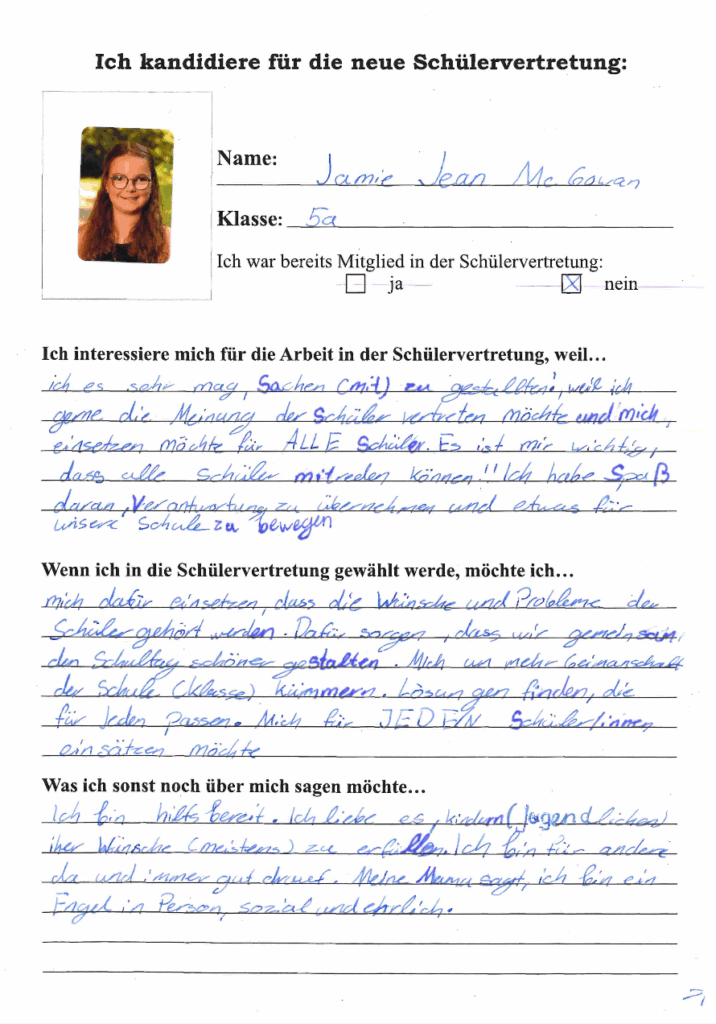 Ich kandidiere für die neue Schülervertretung:
Name: Jamie Jean Mc Gowan
Klasse: 5a
Ich war bereits Mitglied in der Schülervertretung:
☐ ja ☒ nein
Ich interessiere mich für die Arbeit in der Schülervertretung, weil…
ich es sehr mag, Sachen (mit) zu gestallten!, weil ich
gerne die Meinung der Schüler vertreten möchte und mich,
einsetzen möchte für ALLE Schüler. Es ist mir wichtig,
dass alle Schüler mitreden können!! Ich habe Spaß
daran, Verantwortung zu übernehmen und etwas für
unsere Schule zu bewegen
Wenn ich in die Schülervertretung gewählt werde, möchte ich…
mich dafür einsetzen, dass die Wünsche und Probleme der
Schüler gehört werden. Dafür sorgen, dass wir gemeinsam
den Schultag schöner gestalten. Mich um mehr Geimanschaft
der Schule (Klasse) kümmern. Lösungen finden, die
für Jeden passen. Mich für JEDEN Schüler/innen
einsätzen möchte
Was ich sonst noch über mich sagen möchte…
Ich bin hilfsbereit. Ich liebe es, kindern (Jugendlichen)
iher Wünsche (meistens) zu erfüllen. Ich bin für andere
da und immer gut drauf. Meine Mama sagt, ich bin ein
Engel in Person, sozial und ehrlich.